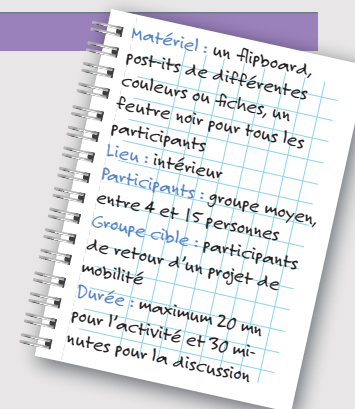 Matériel : un flipboard,
post-its de différentes
couleurs ou fiches, un
feutre noir pour tous les
participants
Lieu : intérieur
Participants : groupe moyen,
entre 4 et 15 personnes
Groupe cible : participants
de retour d'un projet de
mobilité
Durée : maximum 20 mn
pour l'activité et 30 mi-
nutes pour la discussion